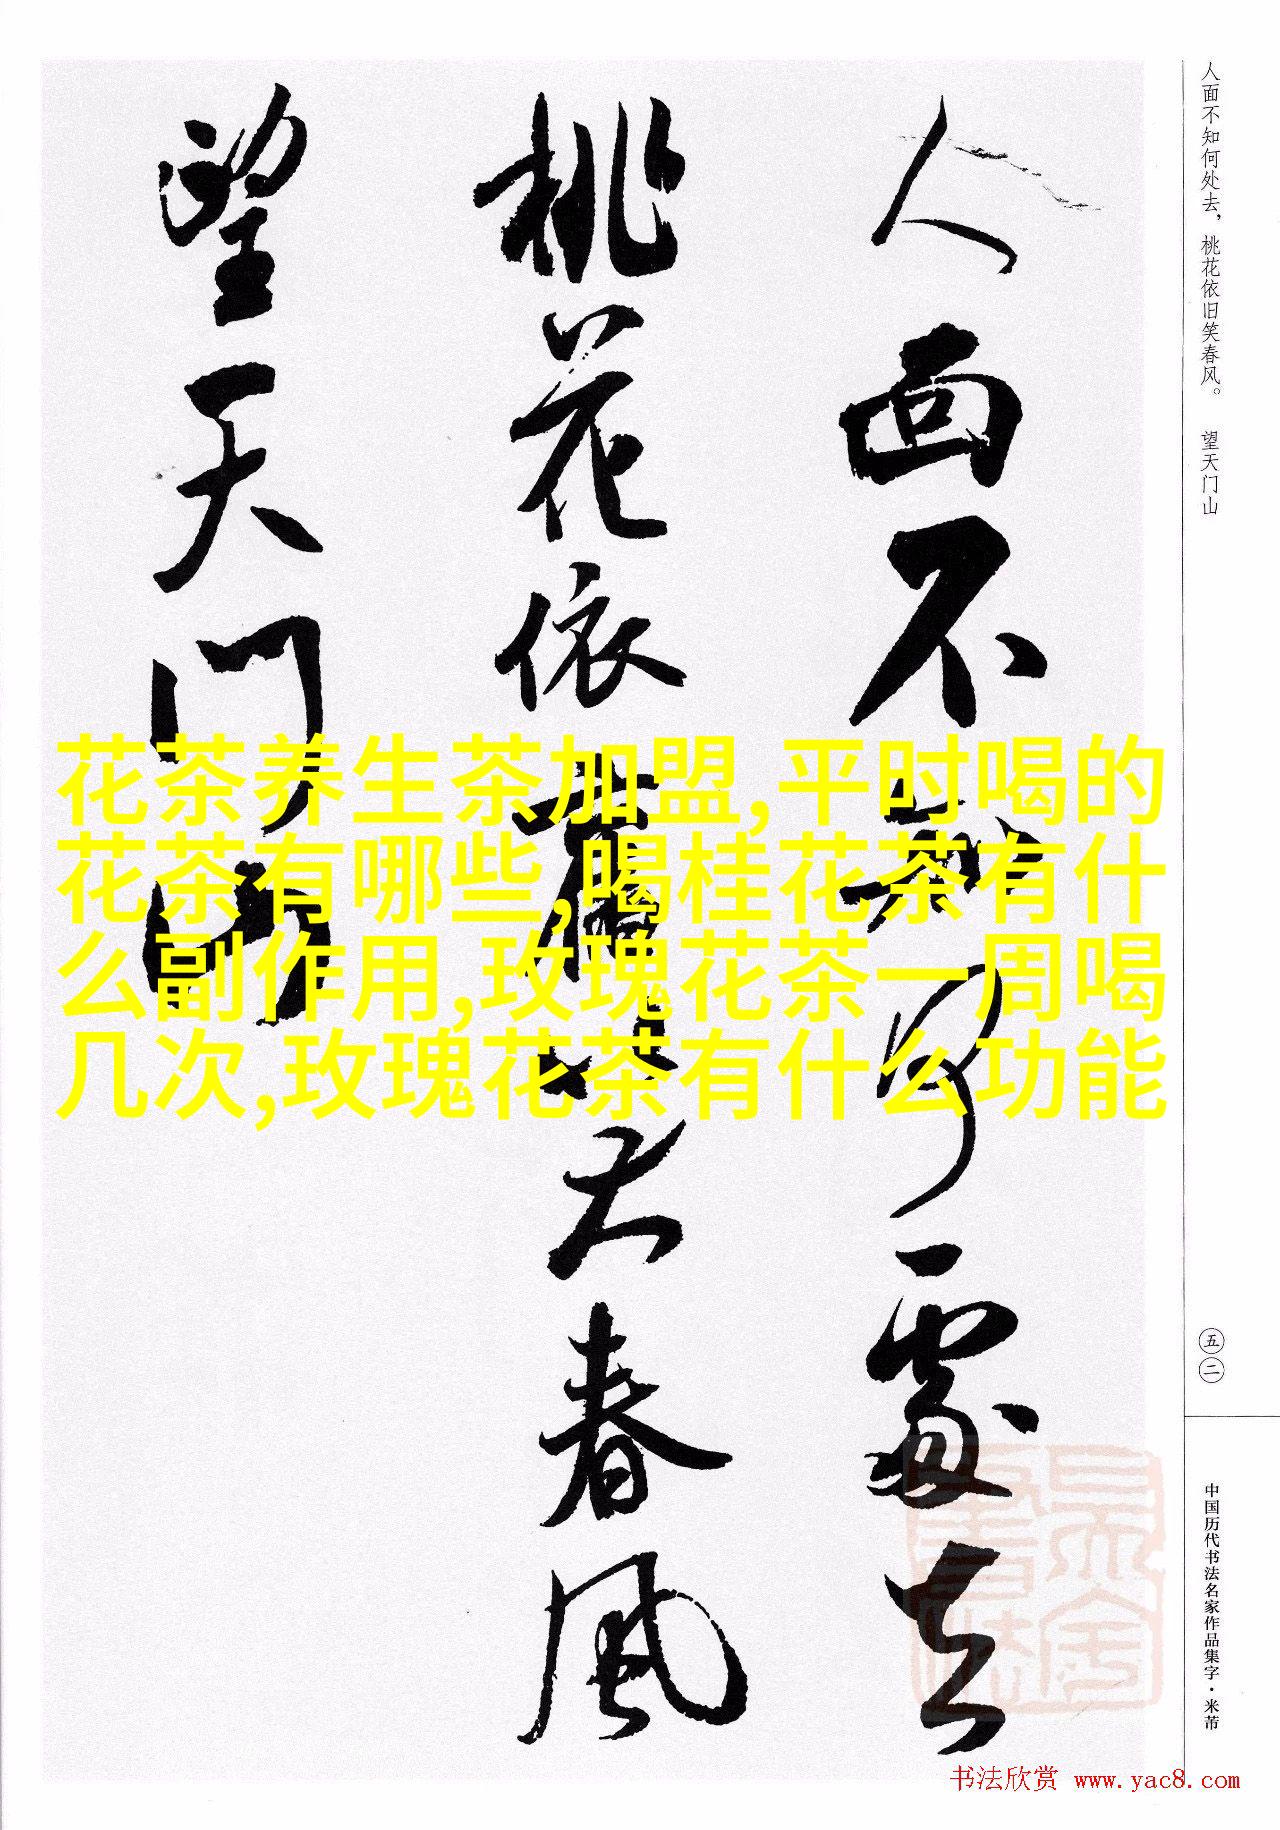 人面不知何处去，桃花依旧笑春风。 望天门山
人面不知何處去
桃花依舊笑春風
望天門山
花茶养生茶加盟,平时喝的
花茶有哪些,喝桂花茶有什
么副作用,玫瑰花茶一周喝
几次,玫瑰花茶有什么功能
五二
中国历代书法名家作品集字·米芾
书法欣赏 www.yac8.com